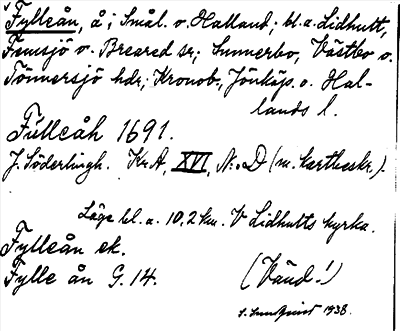 Fylleån, å i Smål. o. Halland; bl.a. Lidhult,
Femsjö o. Breared sr; Sunnerbo, Västbo o.
Tönnersjö hdr; Kronob., Jönköps. o. Hal-
lands l.
Fülleåh 1691.
J. Söderlingh. KrA, XVI, N:o D (m. kartbeskr.).
Läge bl. a. 10,2 km. V Lidhults kyrka.
Fylleån ek.
Fylle ån G. 14.
(Vänd!)
S. Sundquist 1938.